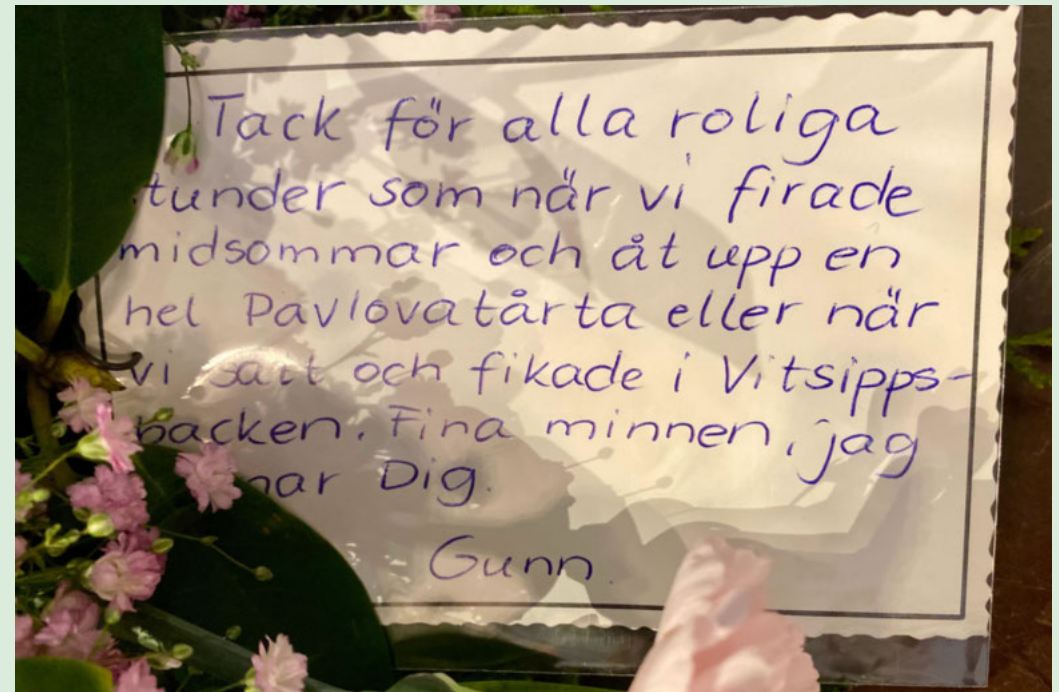 Tack för alla roliga
tunder som när vi firade
midsommar och åt upp en
hel Pavlovatårta eller när
vi satt och fikade i Vitsipps-
backen. Fina minnen, jag
nar Dig.
Gunn.